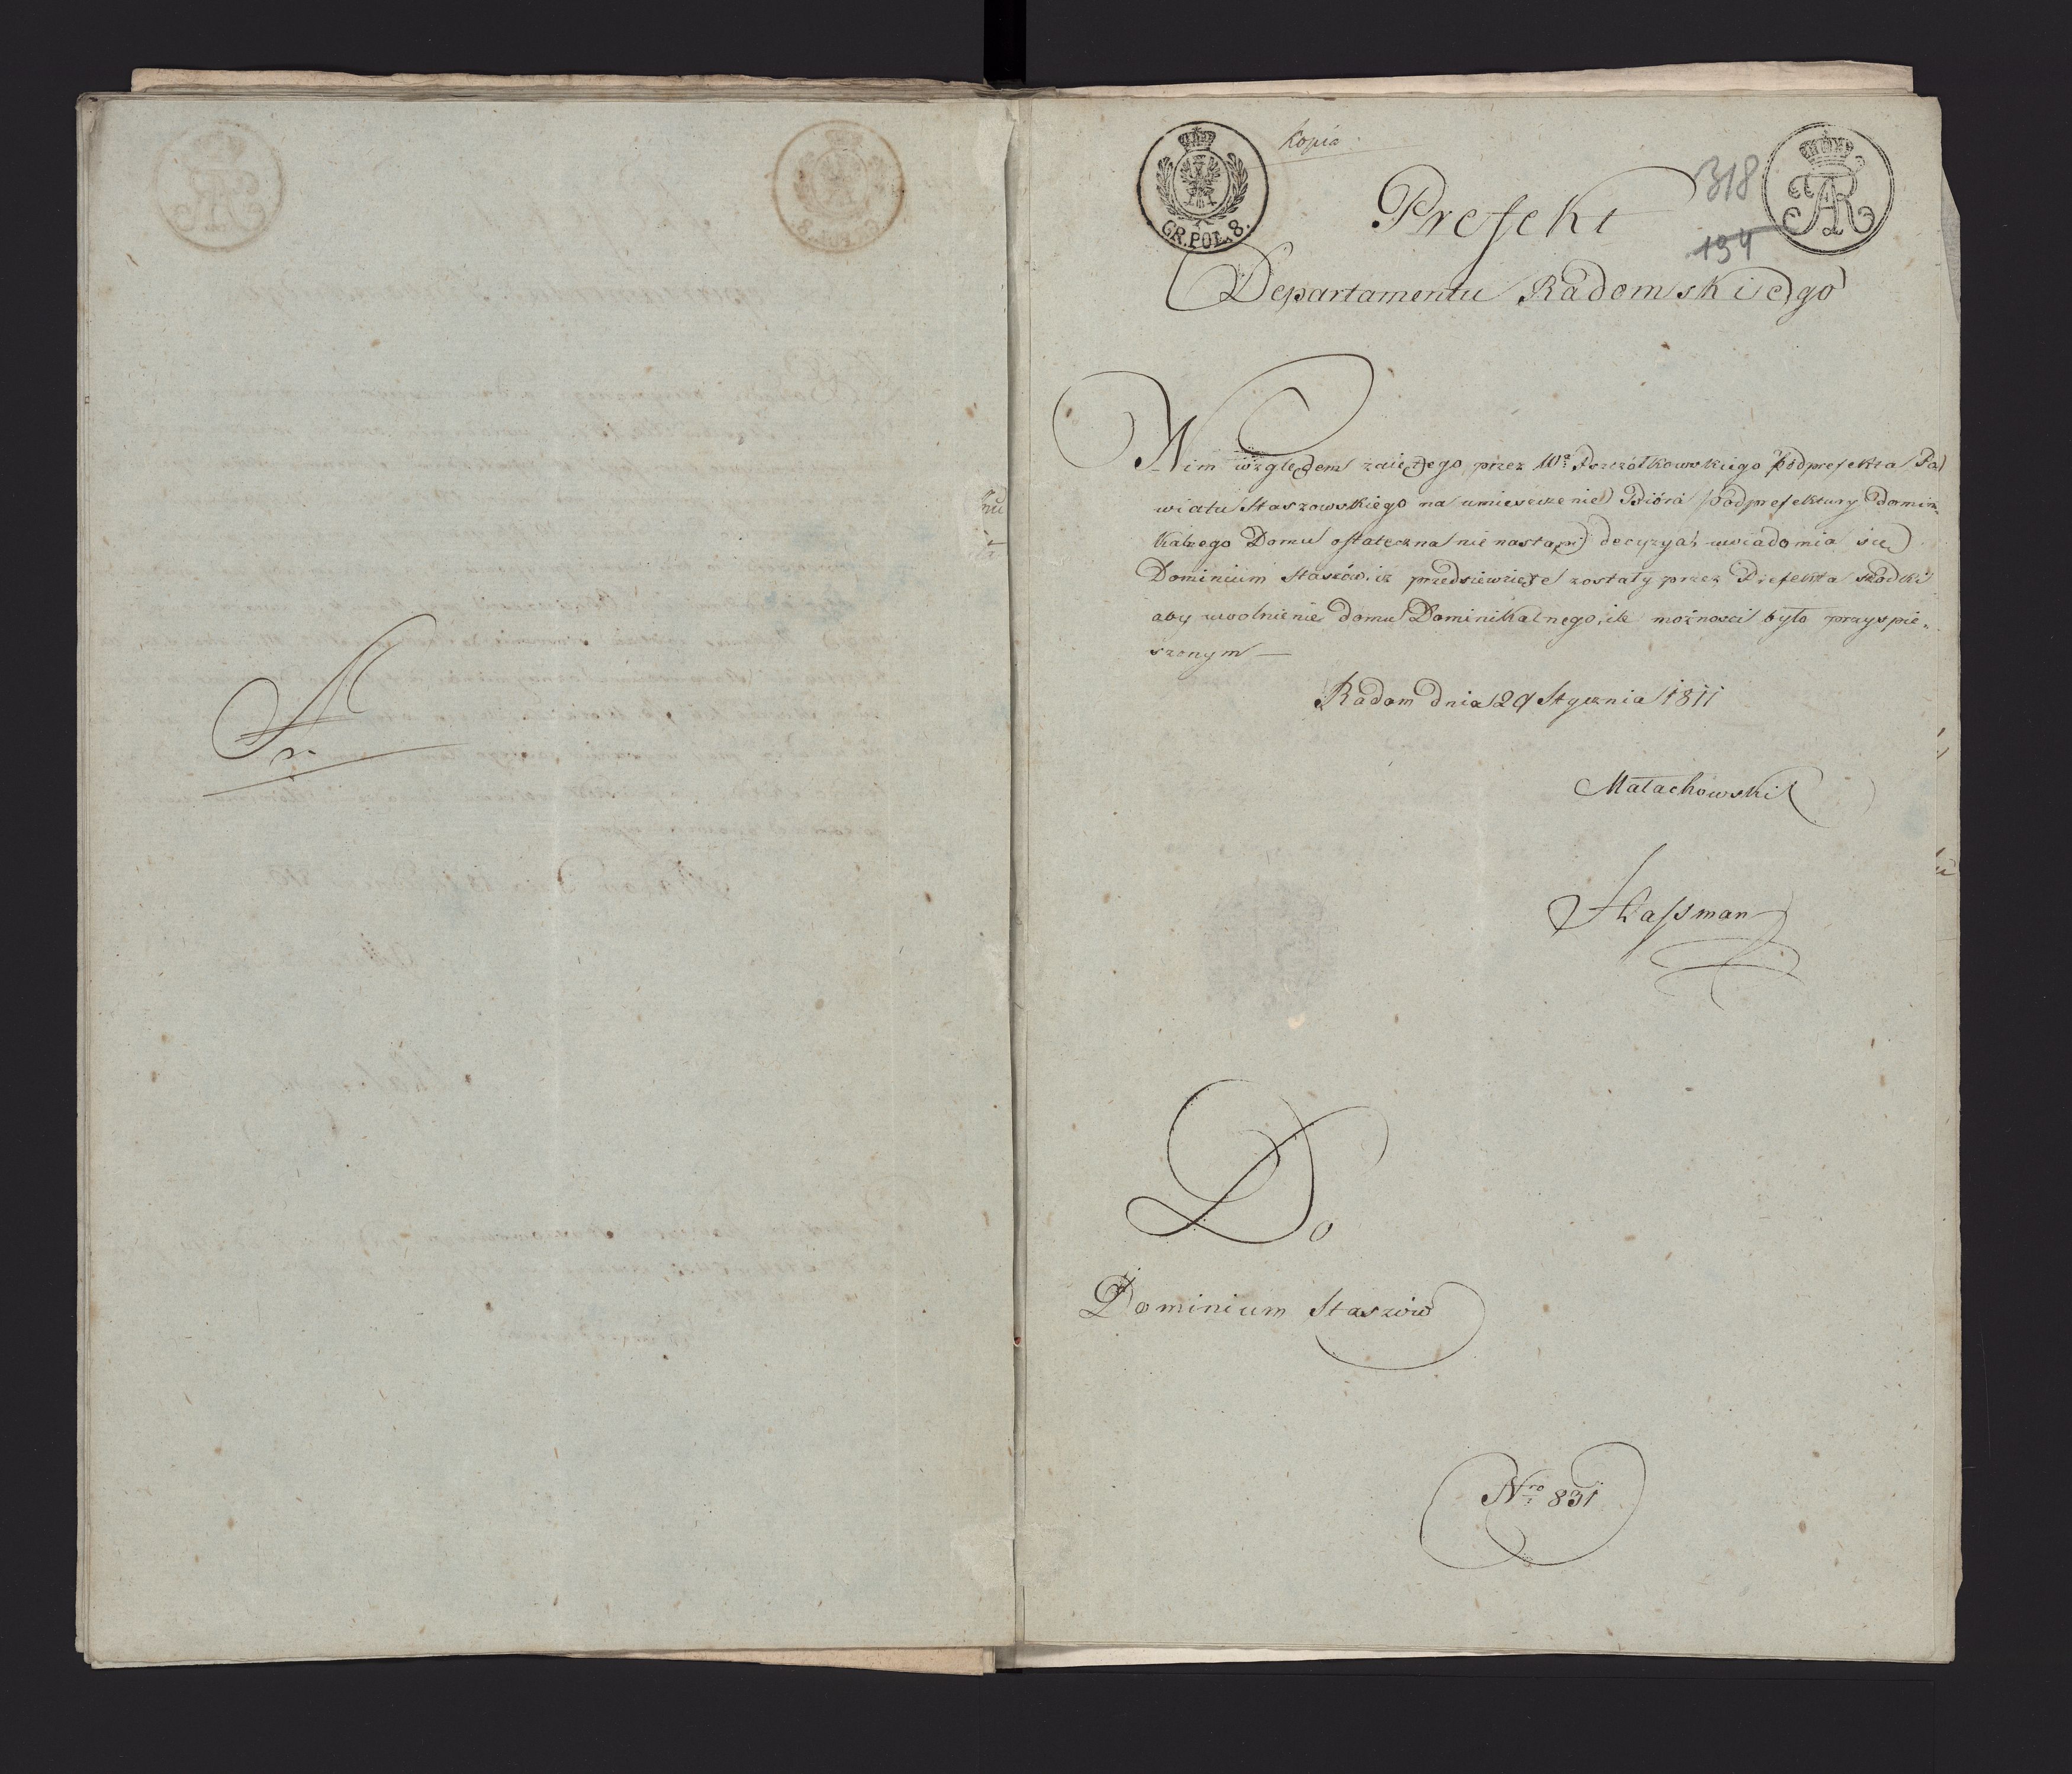 Kopia
GR. POL. 8.
318
194
Prefekt
Departamentu Radomskiego
Nim względem zaiętego przez Wo Pszczółkowskiego Podprefekta Po
wiatu Staszowskiego na umieszczenie Bióra Podprefektury Domin-
kalnego Domu ostateczna nie nastąpi decyzya, uwiadomia się
Dominium Staszów, iż przedsięwzięte zostały przez Prefekta srodki
aby uwolnienie domu Dominikalnego, ile możności było przyspie-
szonym —
Radom dnia 29 Stycznia 1811
Małachowski
Do
Dominium Staszów
Nro 831